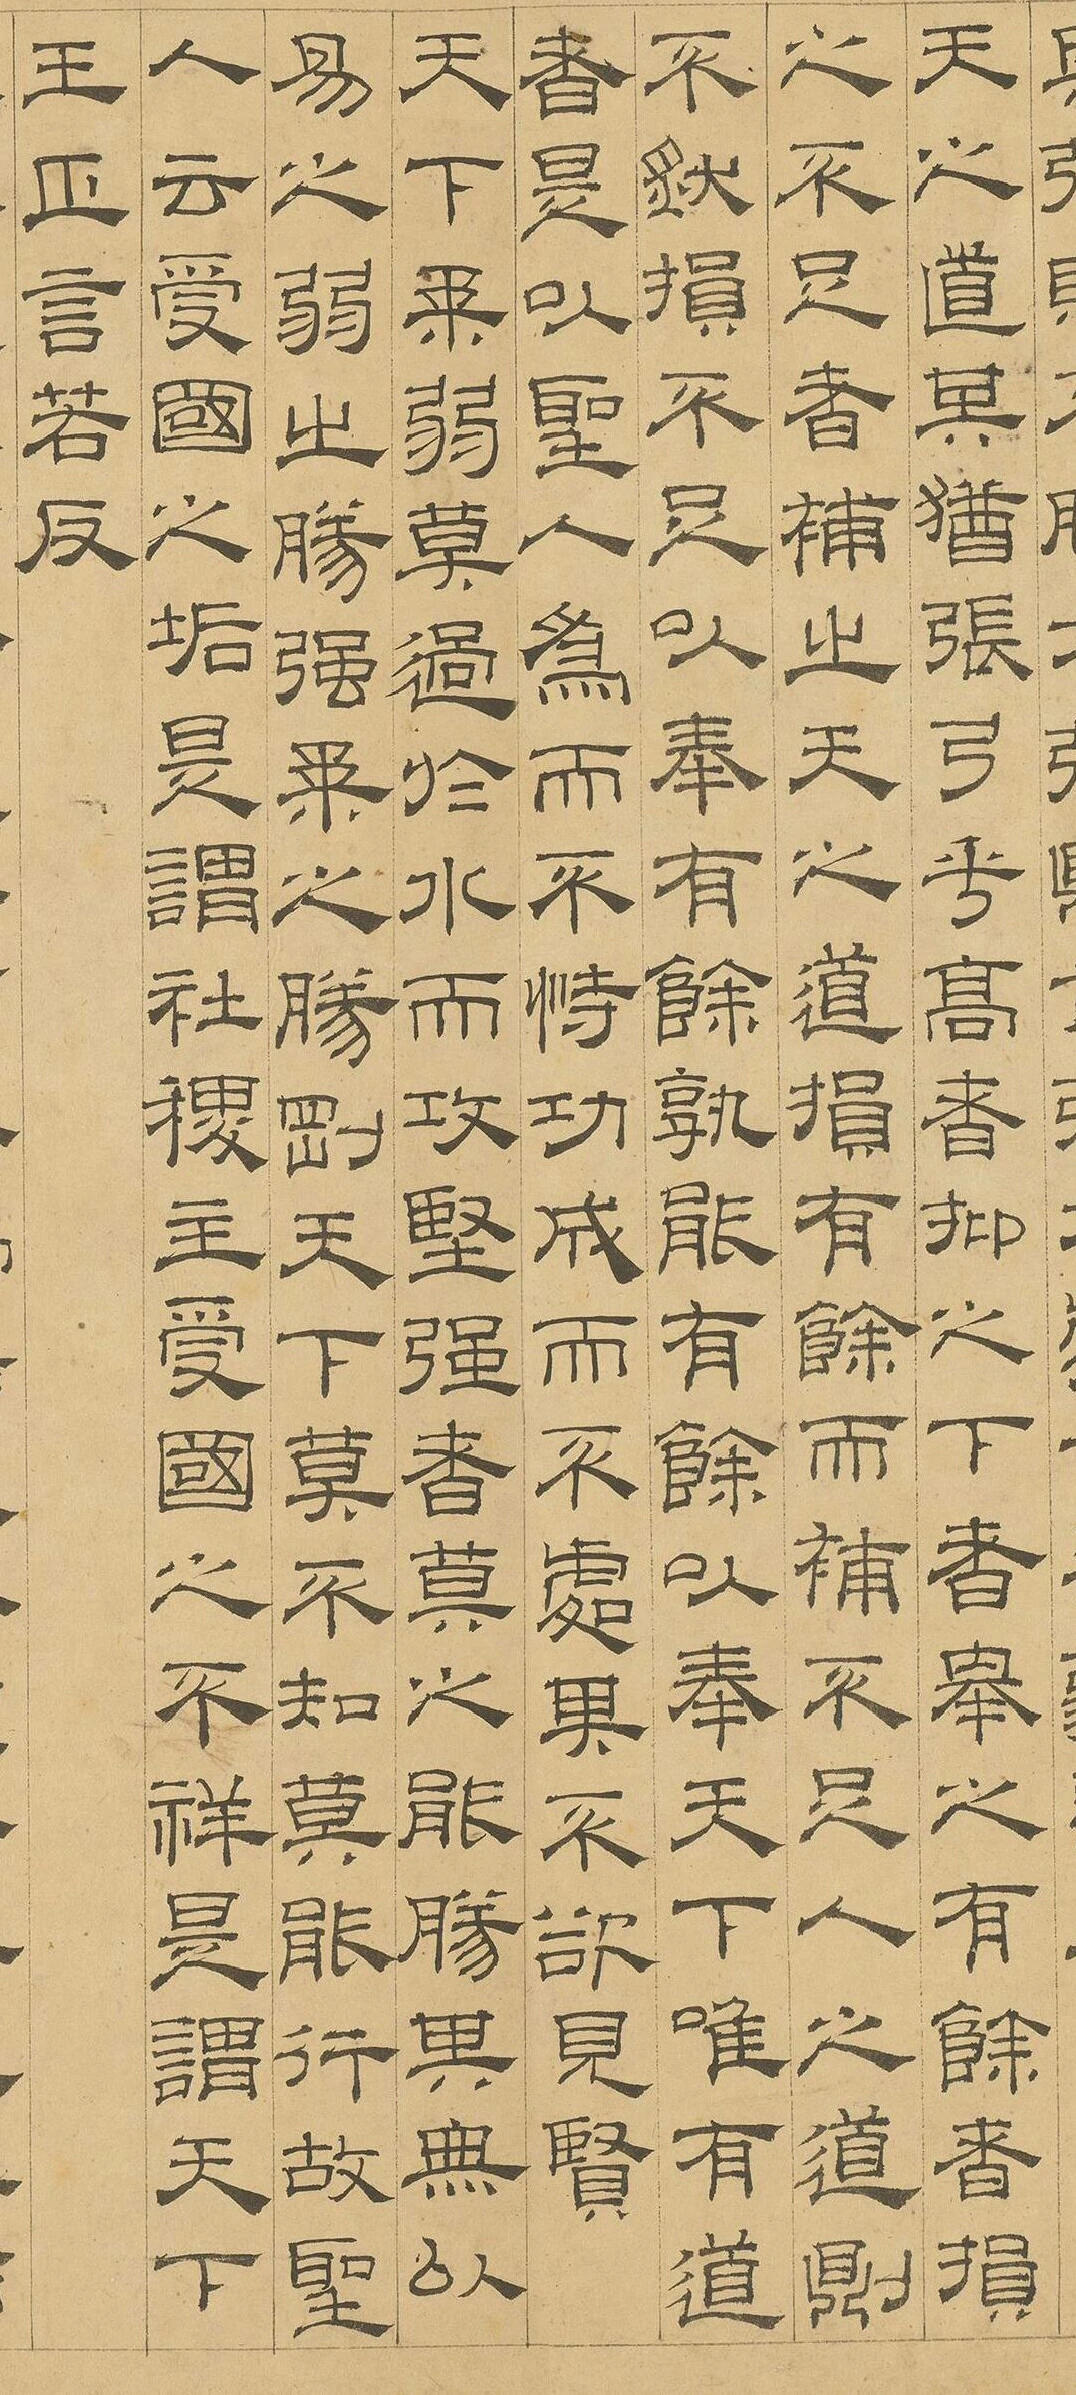 天之道其猶張弓乎高者抑之下者舉之有餘者損
之不足者補之天之道損有餘而補不足人之道則
不然損不足以奉有餘孰能有餘以奉天下唯有道
者是以聖人爲而不恃功成而不處其不欲見賢
天下柔弱莫過於水而攻堅强者莫之能勝其無以
易之弱之勝强柔之勝剛天下莫不知莫能行故聖
人云受國之垢是謂社稷主受國之不祥是謂天下
王正言若反